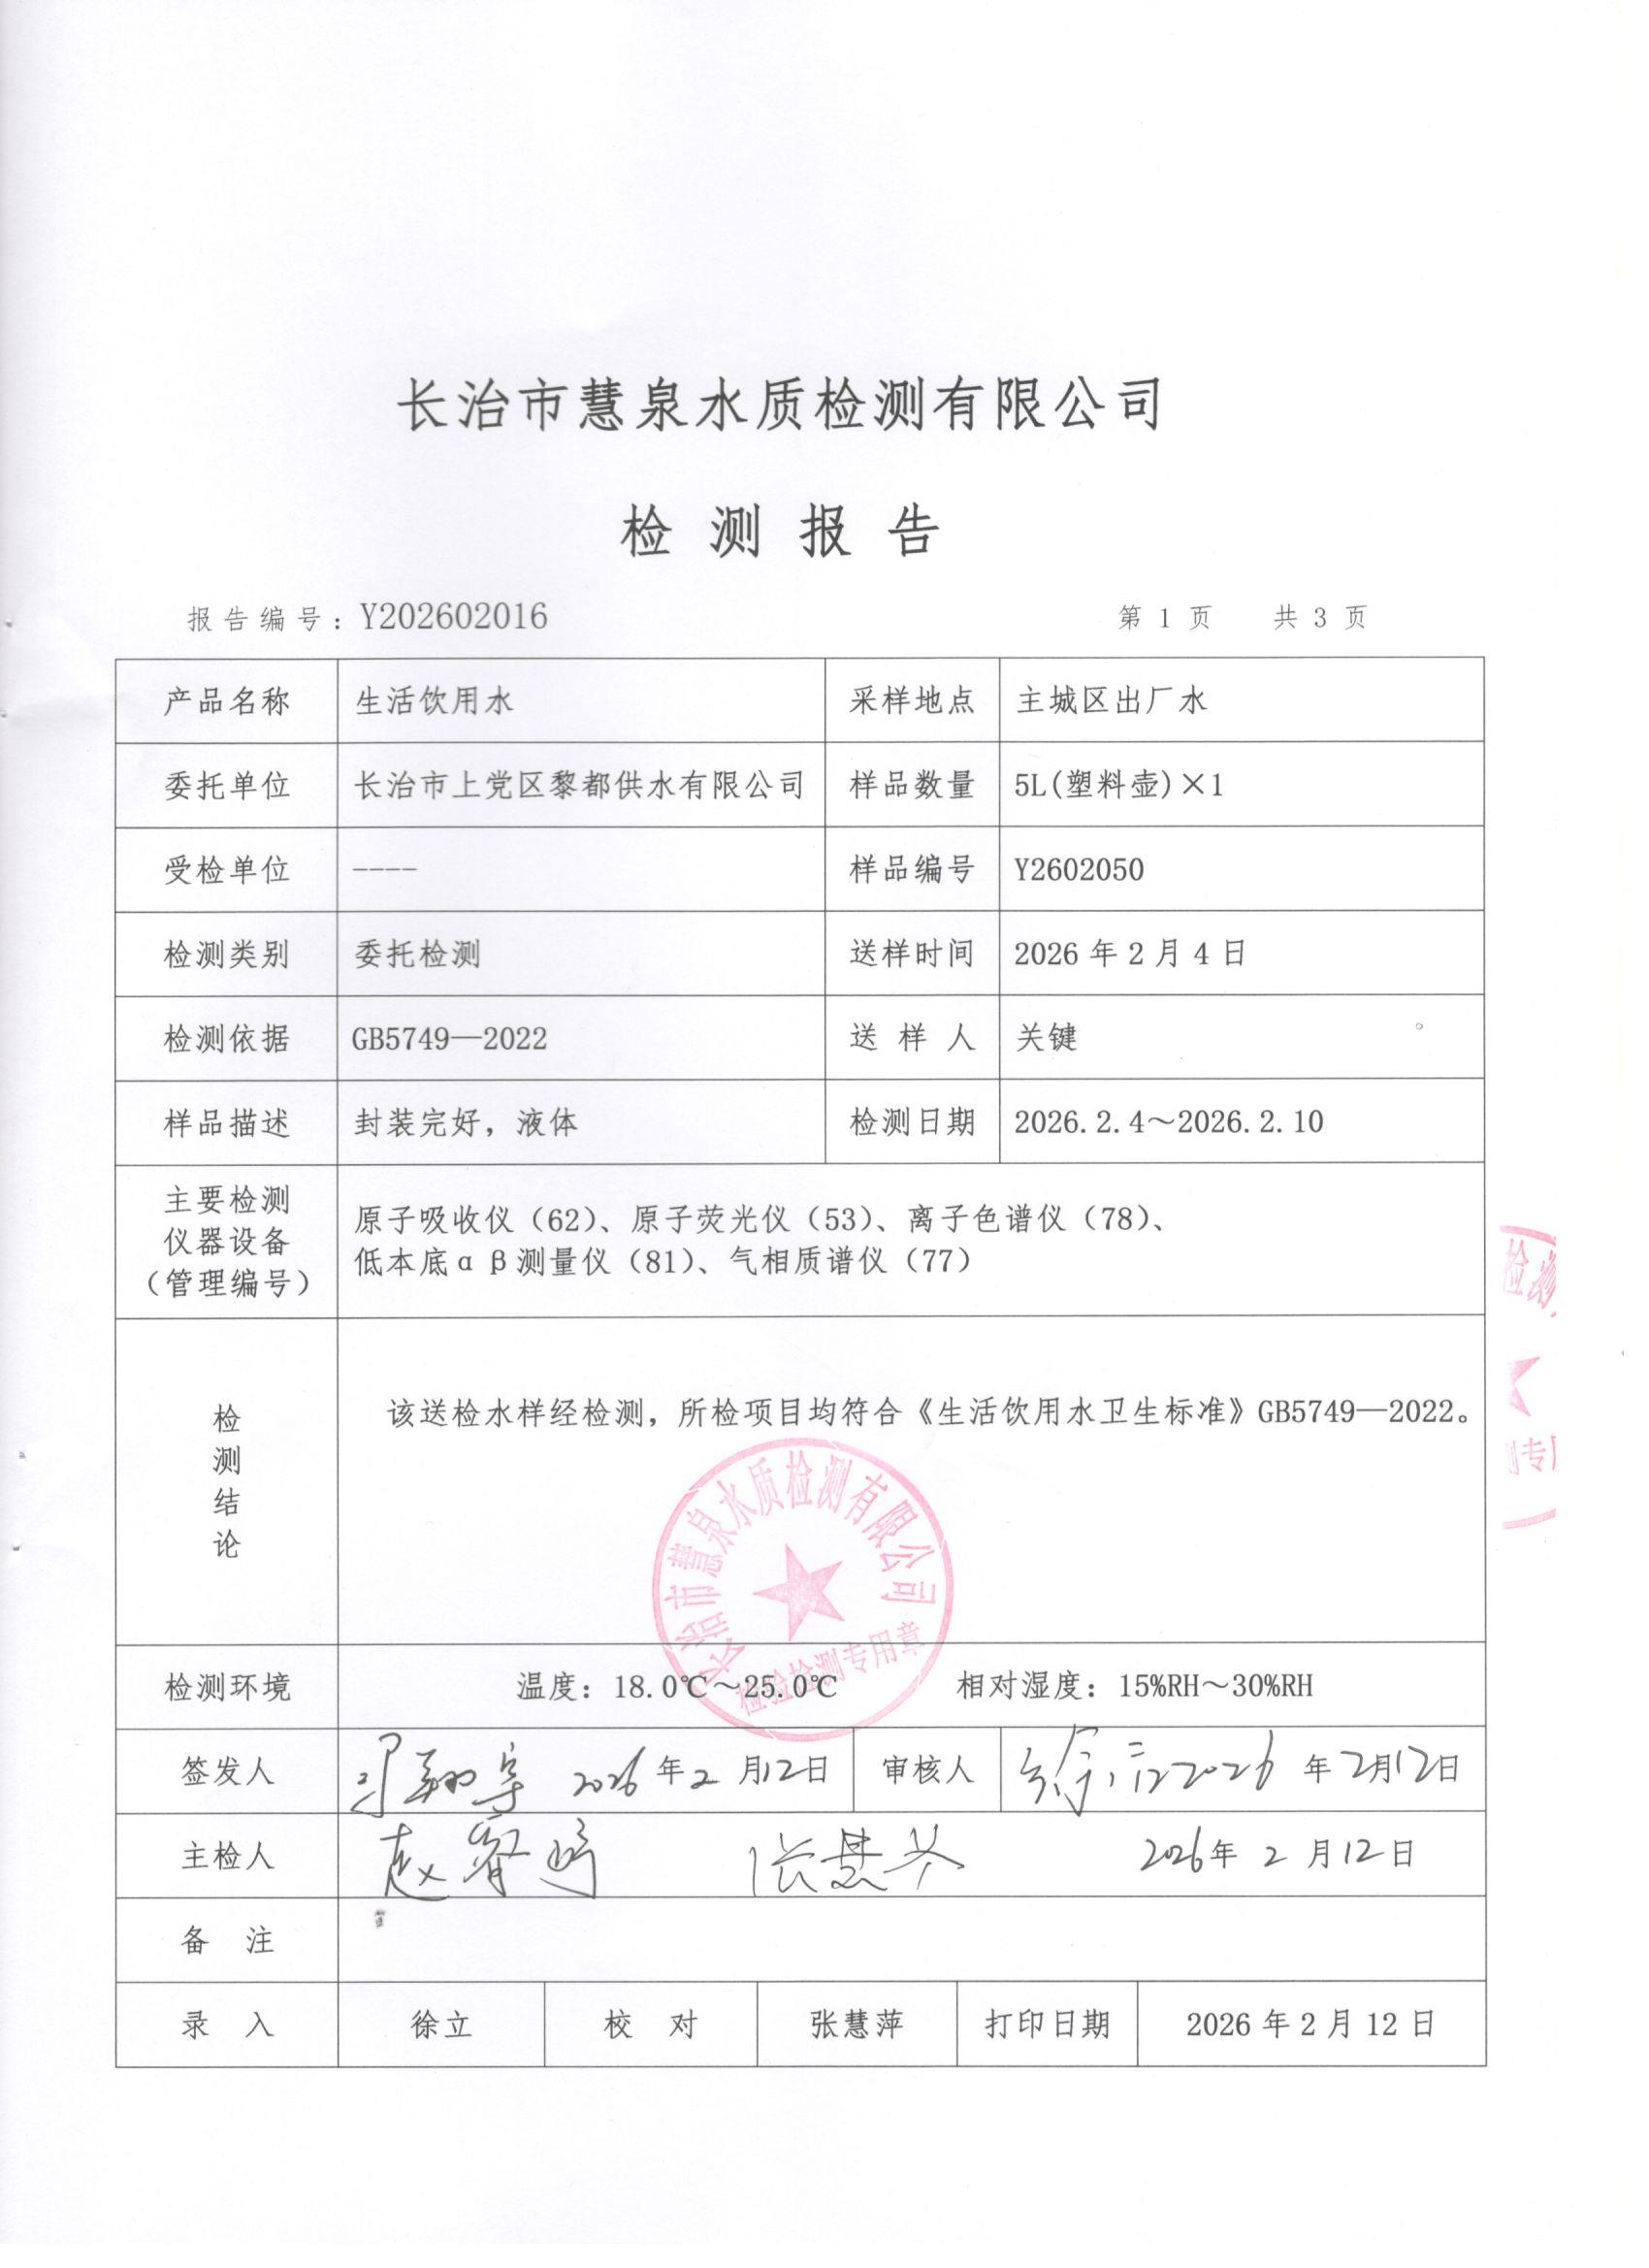 长治市慧泉水质检测有限公司
检测报告
报告编号：Y202602016 第 1 页 共 3 页
产品名称 生活饮用水 采样地点 主城区出厂水
委托单位 长治市上党区黎都供水有限公司 样品数量 5L(塑料壶)×1
受检单位 ---- 样品编号 Y2602050
检测类别 委托检测 送样时间 2026 年 2 月 4 日
检测依据 GB5749—2022 送样人 关键
样品描述 封装完好，液体 检测日期 2026.2.4～2026.2.10
主要检测
仪器设备
（管理编号）
原子吸收仪（62）、原子荧光仪（53）、离子色谱仪（78）、
低本底α β测量仪（81）、气相质谱仪（77）
检测结论
该送检水样经检测，所检项目均符合《生活饮用水卫生标准》GB5749—2022。
长治市慧泉水质检测有限公司
检验检测专用章
检测环境 温度：18.0℃～25.0℃ 相对湿度：15%RH～30%RH
签发人 2026 年 2 月 12 日 审核人 2026 年 2 月 12 日
主检人 2026 年 2 月 12 日
备注
录入 徐立 校对 张慧萍 打印日期 2026 年 2 月 12 日